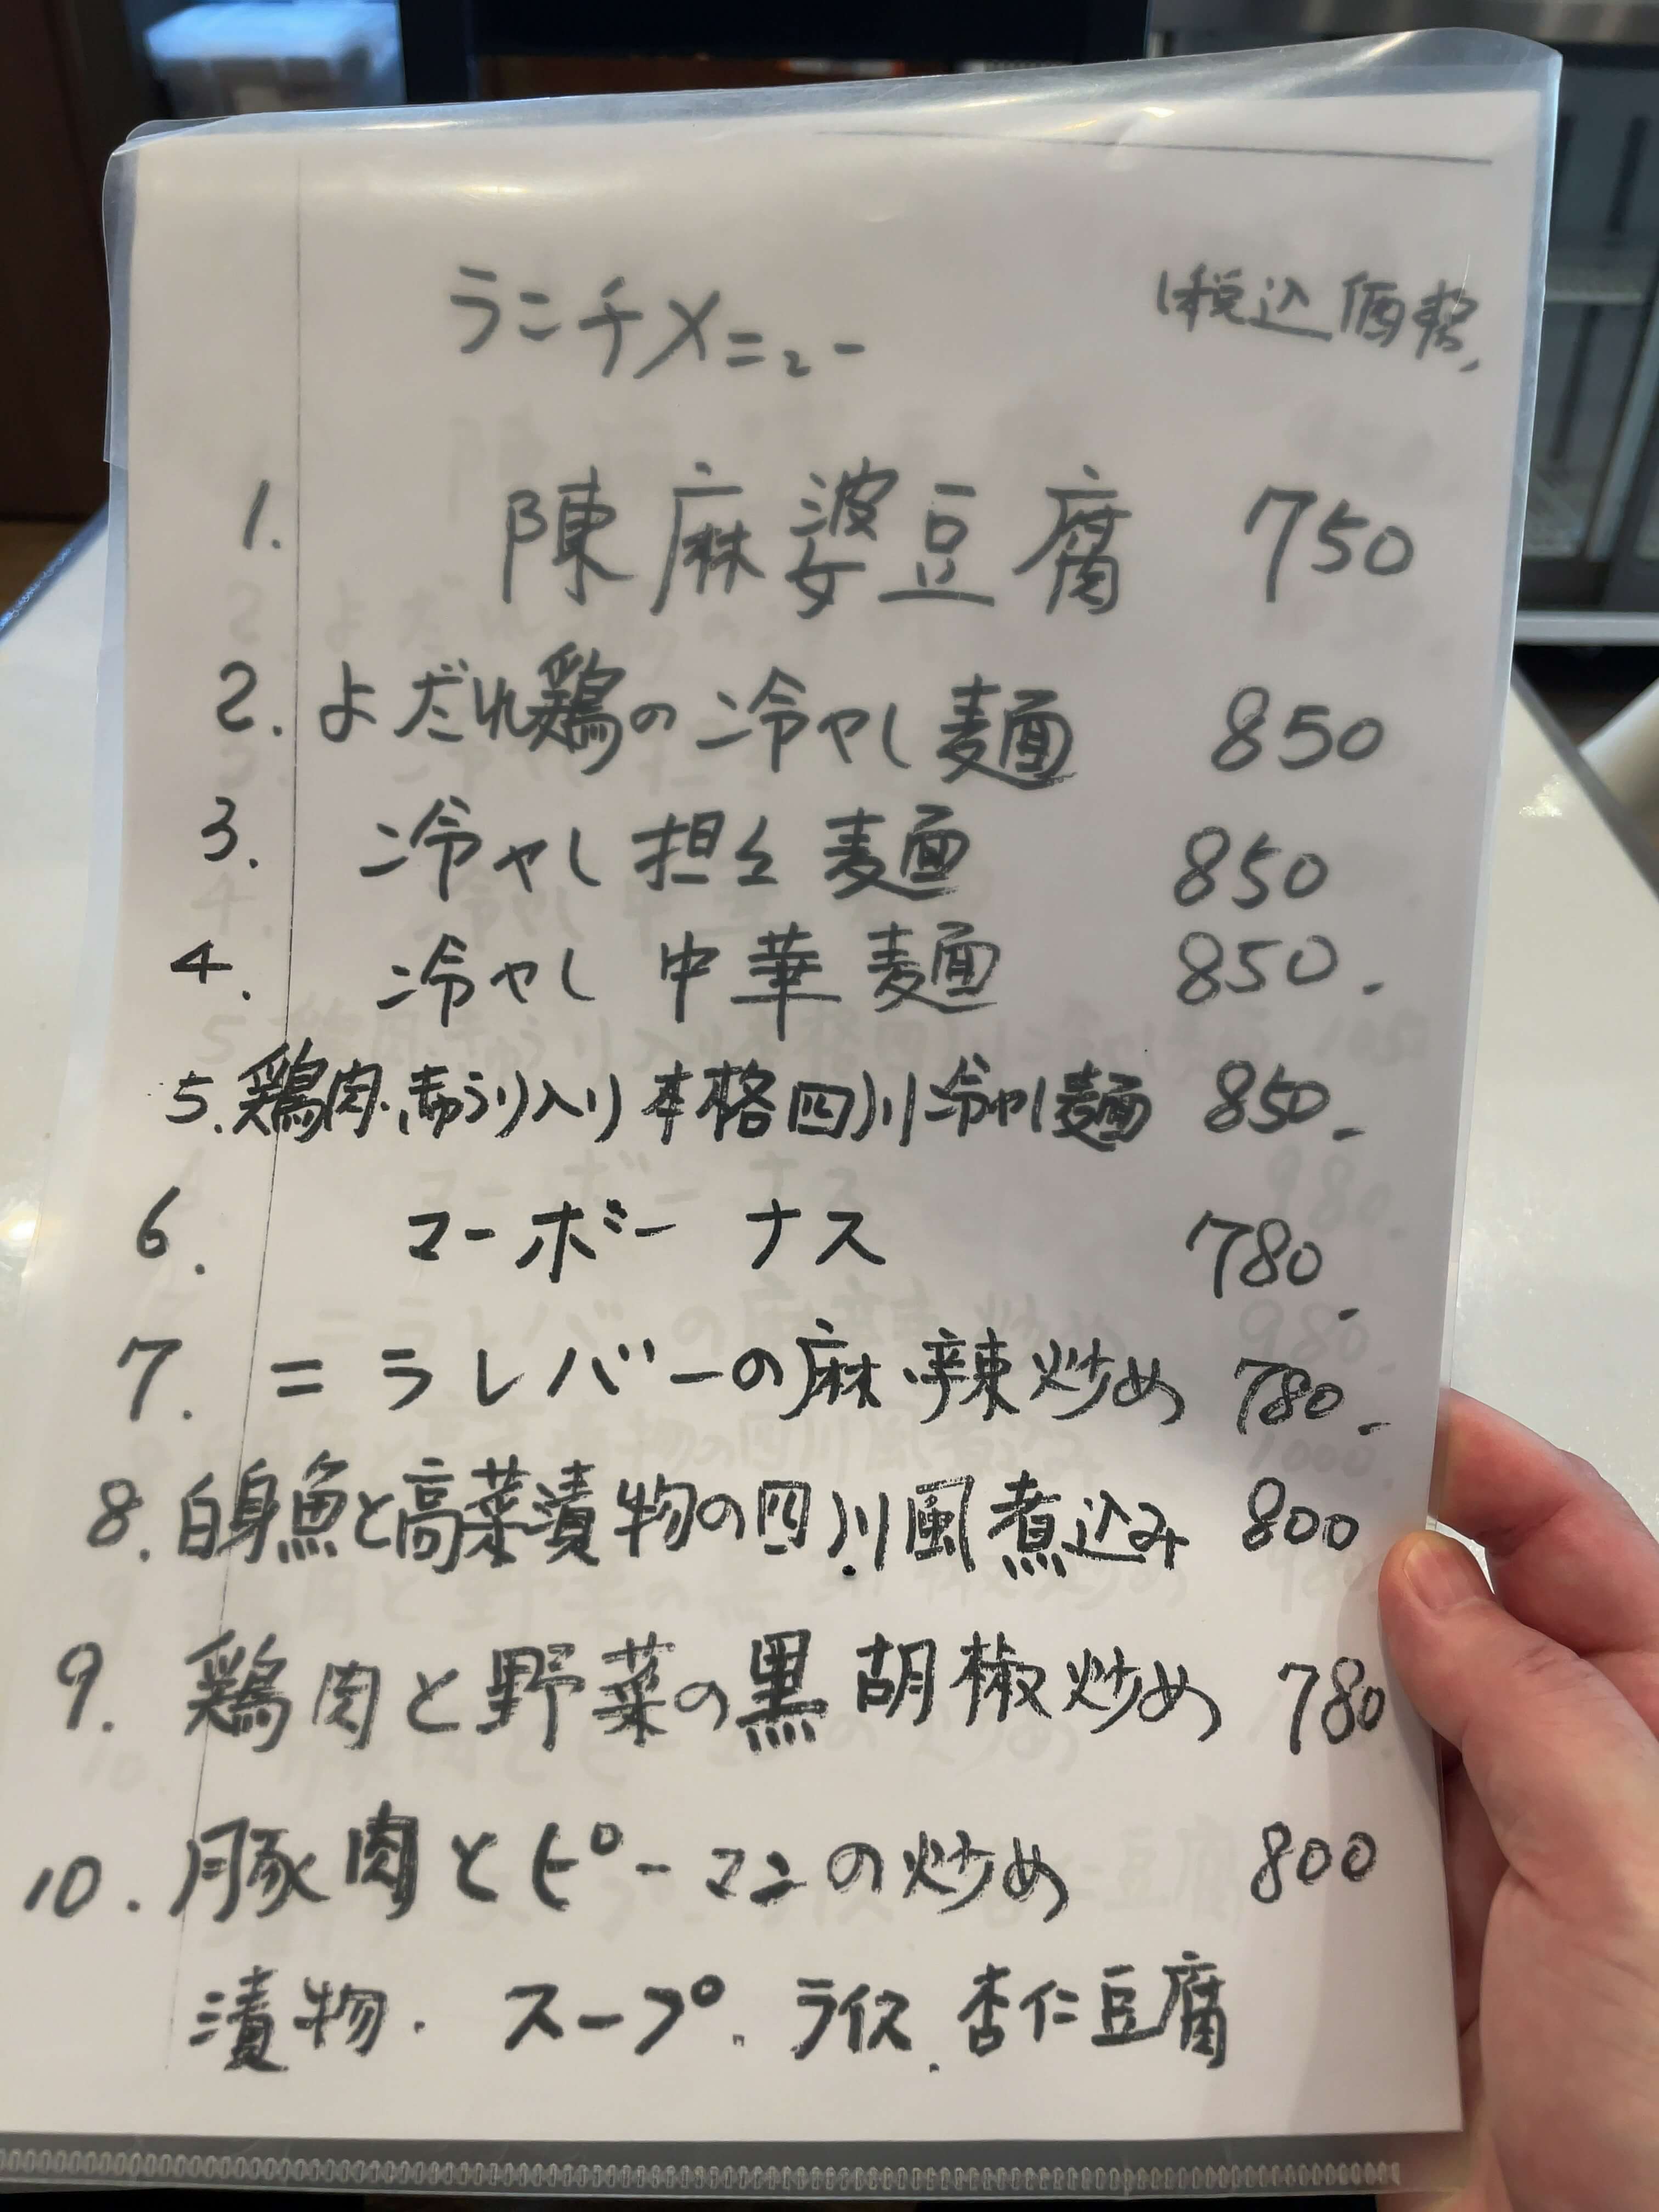 ランチメニュー 税込価格
1. 陳麻婆豆腐 750
2. よだれ鶏の冷やし麺 850
3. 冷やし担々麺 850
4. 冷やし中華麺 850.-
5. 鶏肉.きゅうり入り本格四川冷やし麺 850.-
6. マーボーナス 780.-
7. ニラレバーの麻辣炒め 780.-
8. 白身魚と高菜漬物の四川風煮込み 800
9. 鶏肉と野菜の黒胡椒炒め 780
10. 豚肉とピーマンの炒め 800
漬物. スープ. ライス. 杏仁豆腐